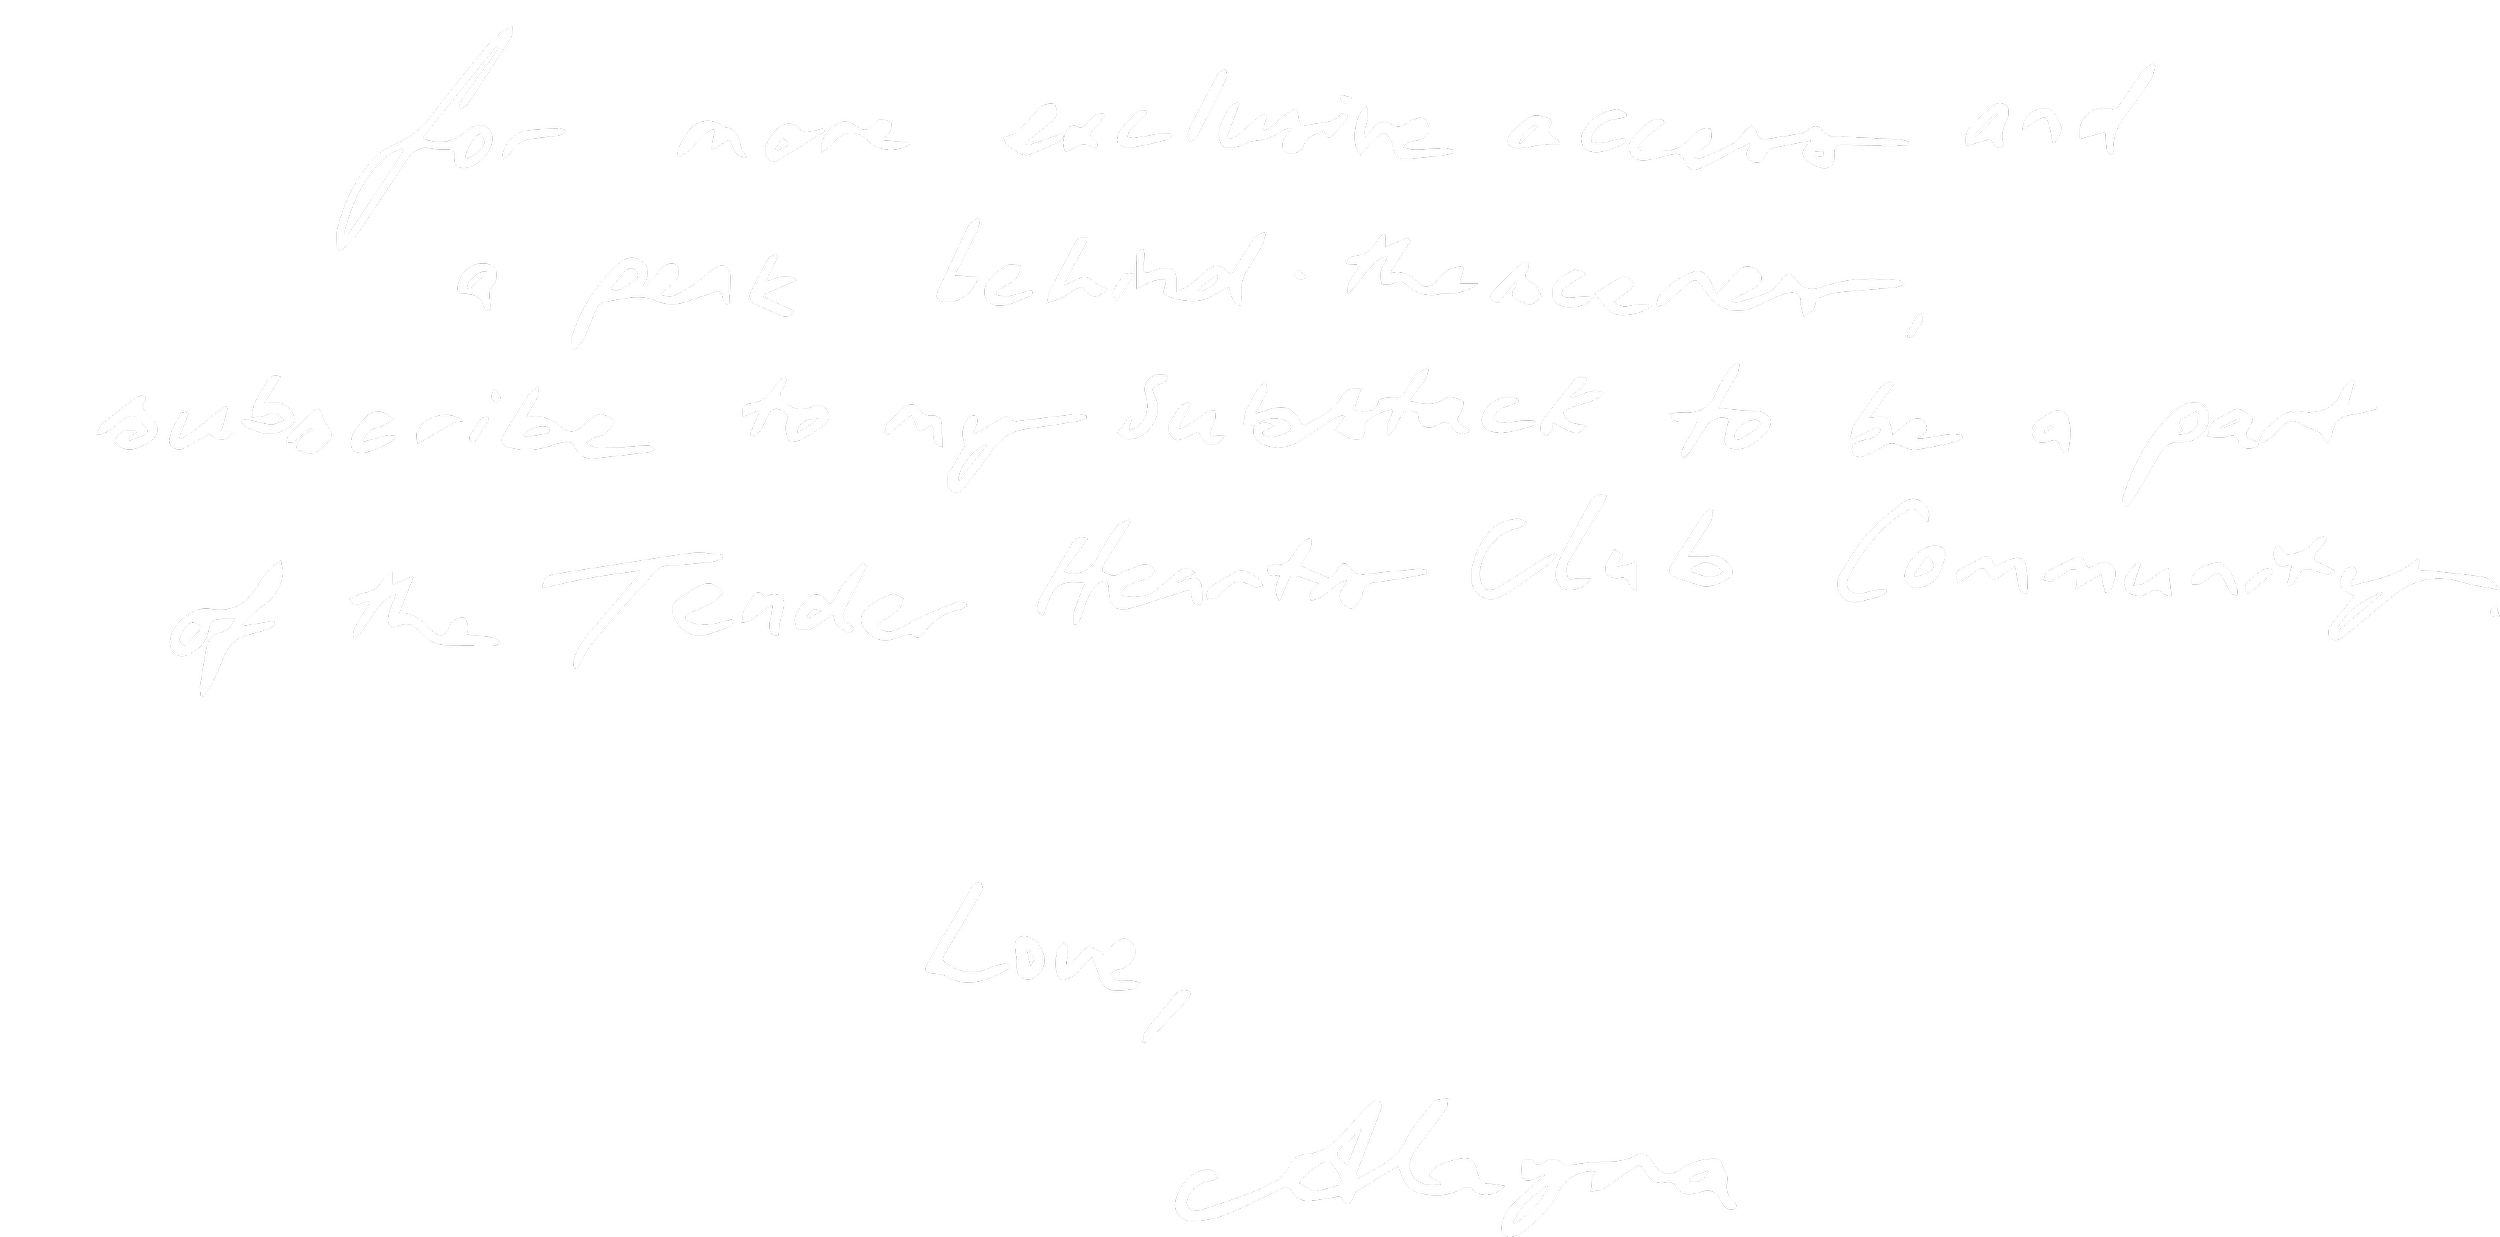 for more exclusive access and
a peek behind-the-scenes,
subscribe to my Substack to be a part
of the Tender Hearts Club Community.
Love,
Alayna